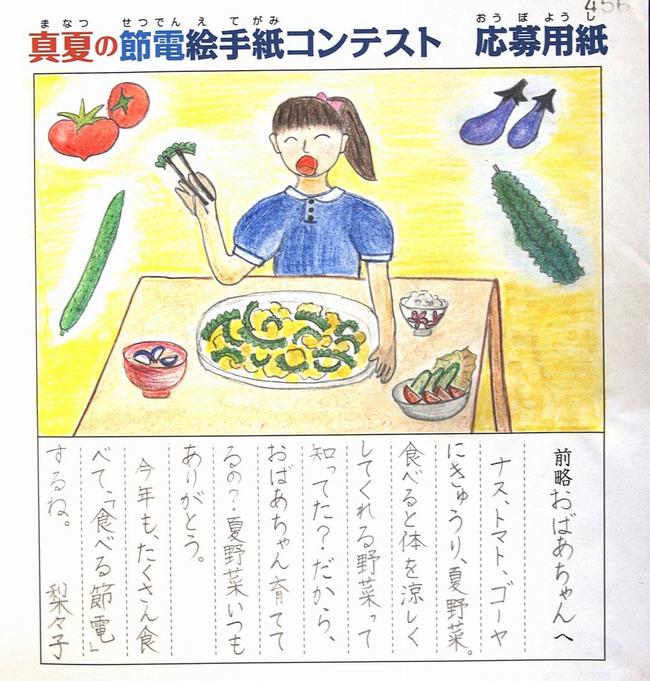 まなつ せつでんえてがみ おうぼようし
真夏の節電絵手紙コンテスト 応募用紙
456
前略おばあちゃんへ
ナス、トマト、ゴーヤ
にきゅうり、夏野菜。
食べると体を涼しく
してくれる野菜って
知ってた?だから、
おばあちゃん育てて
るの?夏野菜いつも
ありがとう。
今年も、たくさん食
べて、「食べる節電」
するね。 梨々子